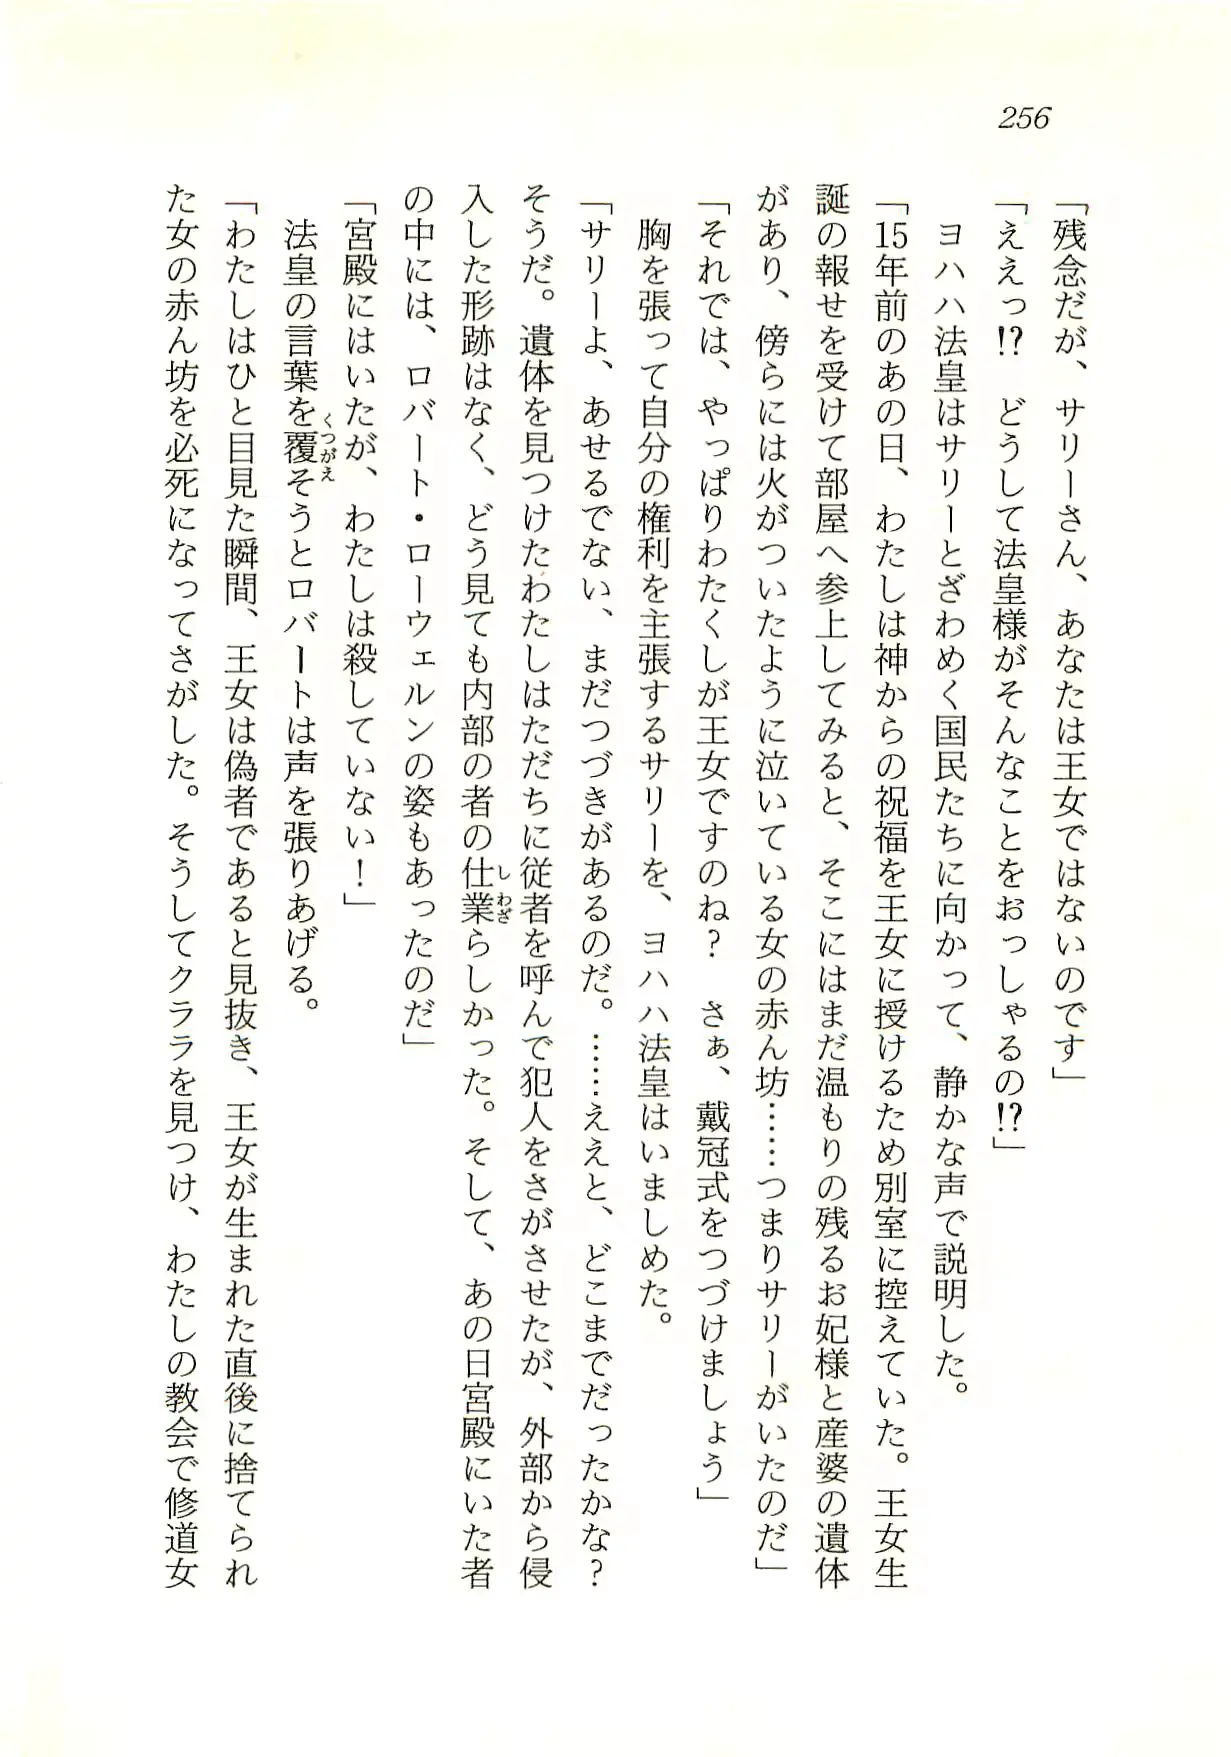 256
「残念だが、サリーさん、あなたは王女ではないのです」
「ええっ!?　どうして法皇様がそんなことをおっしゃるの!?」
　ヨハハ法皇はサリーとざわめく国民たちに向かって、静かな声で説明した。
「15年前のあの日、わたしは神からの祝福を王女に授けるため別室に控えていた。王女生
誕の報せを受けて部屋へ参上してみると、そこにはまだ温もりの残るお妃様と産婆の遺体
があり、傍らには火がついたように泣いている女の赤ん坊……つまりサリーがいたのだ」
「それでは、やっぱりわたくしが王女ですのね?　さぁ、戴冠式をつづけましょう」
　胸を張って自分の権利を主張するサリーを、ヨハハ法皇はいましめた。
「サリーよ、あせるでない、まだつづきがあるのだ。……ええと、どこまでだったかな?
そうだ。遺体を見つけたわたしはただちに従者を呼んで犯人をさがさせたが、外部から侵
入した形跡はなく、どう見ても内部の者の仕業らしかった。そして、あの日宮殿にいた者
の中には、ロバート・ローウェルンの姿もあったのだ」
「宮殿にはいたが、わたしは殺していない!」
　法皇の言葉を覆そうとロバートは声を張りあげる。
「わたしはひと目見た瞬間、王女は偽者であると見抜き、王女が生まれた直後に捨てられ
た女の赤ん坊を必死になってさがした。そうしてクララを見つけ、わたしの教会で修道女